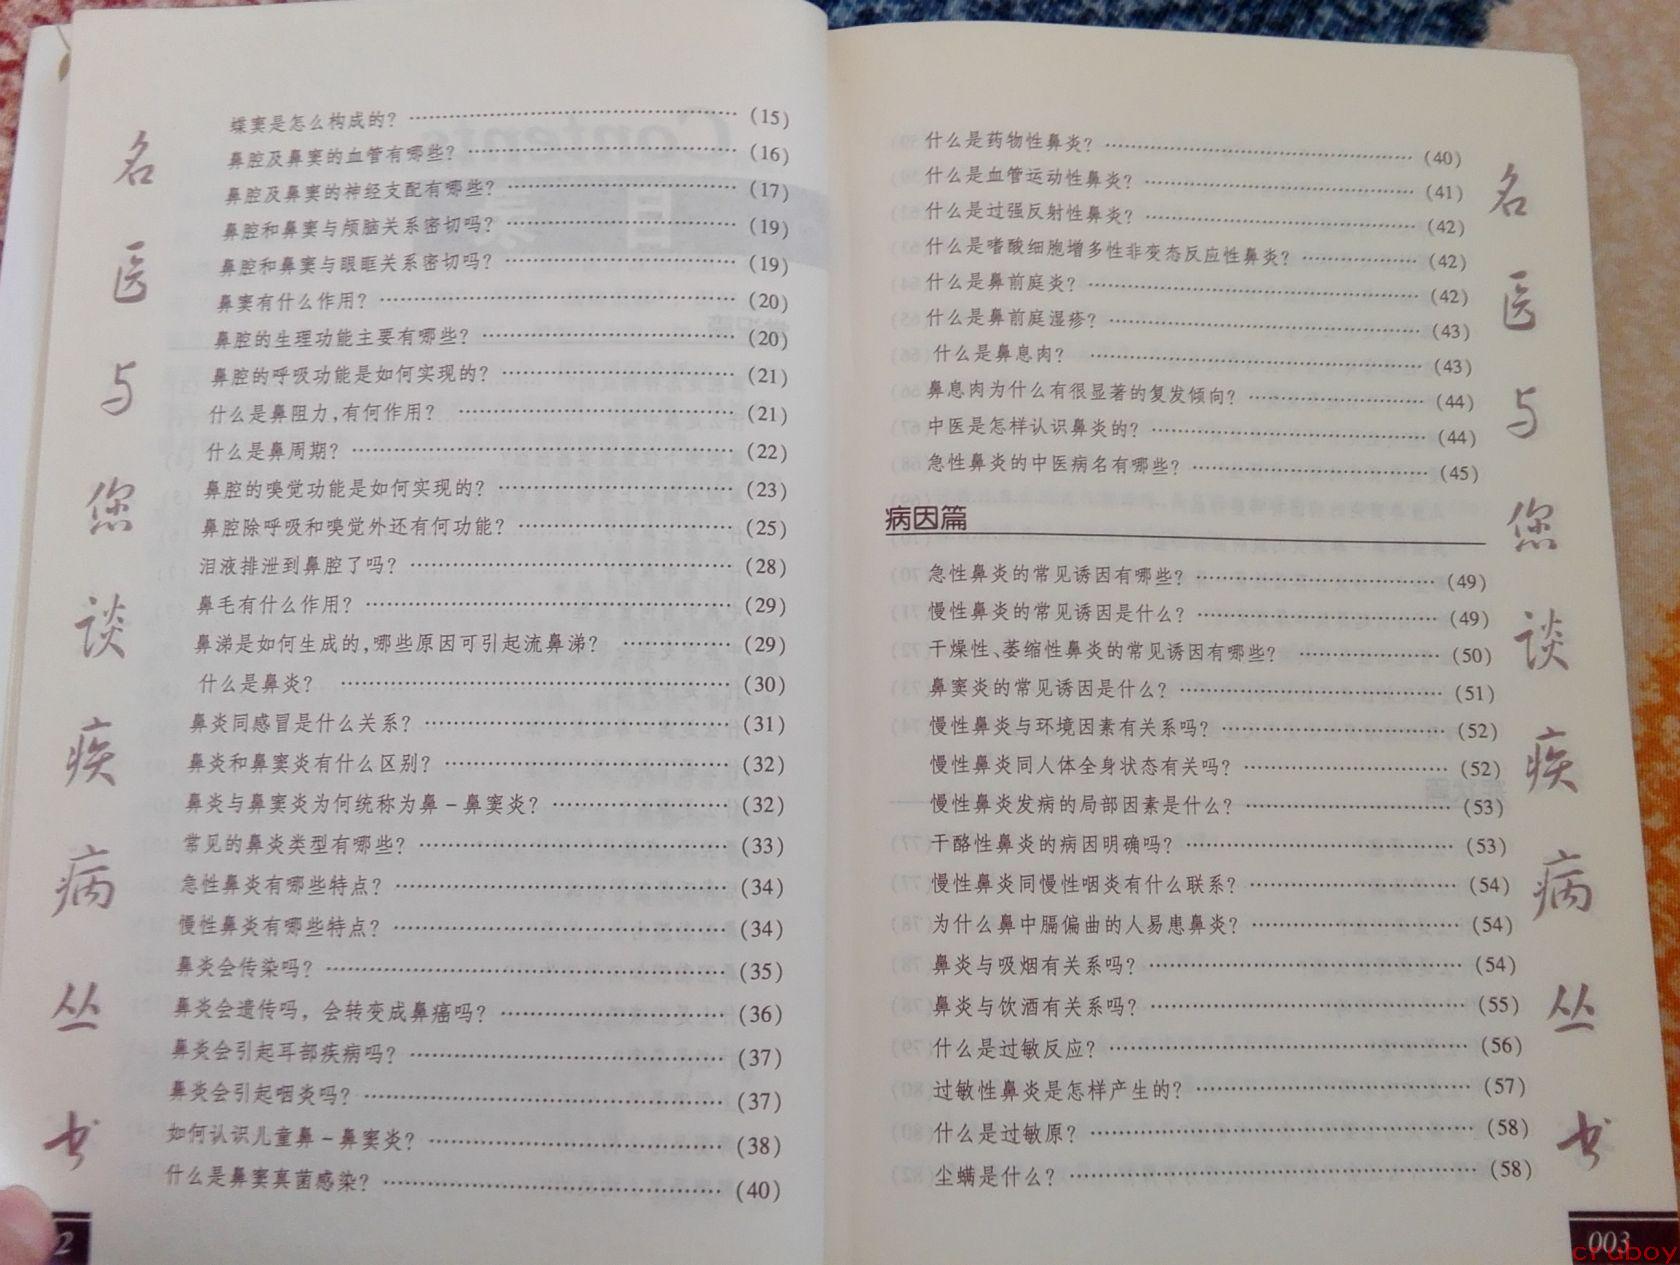 名医与您谈疾病丛书
蝶窦是怎么构成的？ (15)
鼻腔及鼻窦的血管有哪些？ (16)
鼻腔及鼻窦的神经支配有哪些？ (17)
鼻腔和鼻窦与颅脑关系密切吗？ (19)
鼻腔和鼻窦与眼眶关系密切吗？ (19)
鼻窦有什么作用？ (20)
鼻腔的生理功能主要有哪些？ (20)
鼻腔的呼吸功能是如何实现的？ (21)
什么是鼻阻力，有何作用？ (21)
什么是鼻周期？ (22)
鼻腔的嗅觉功能是如何实现的？ (23)
鼻腔除呼吸和嗅觉外还有何功能？ (25)
泪液排泄到鼻腔了吗？ (28)
鼻毛有什么作用？ (29)
鼻涕是如何生成的，哪些原因可引起流鼻涕？ (29)
什么是鼻炎？ (30)
鼻炎同感冒是什么关系？ (31)
鼻炎和鼻窦炎有什么区别？ (32)
鼻炎与鼻窦炎为何统称为鼻－鼻窦炎？ (32)
常见的鼻炎类型有哪些？ (33)
急性鼻炎有哪些特点？ (34)
慢性鼻炎有哪些特点？ (34)
鼻炎会传染吗？ (35)
鼻炎会遗传吗，会转变成鼻癌吗？ (36)
鼻炎会引起耳部疾病吗？ (37)
鼻炎会引起咽炎吗？ (37)
如何认识儿童鼻－鼻窦炎？ (38)
什么是鼻窦真菌感染？ (40)
2
什么是药物性鼻炎？ (40)
什么是血管运动性鼻炎？ (41)
什么是过强反射性鼻炎？ (42)
什么是嗜酸细胞增多性非变态反应性鼻炎？ (42)
什么是鼻前庭炎？ (42)
什么是鼻前庭湿疹？ (43)
什么是鼻息肉？ (43)
鼻息肉为什么有很显著的复发倾向？ (44)
中医是怎样认识鼻炎的？ (44)
急性鼻炎的中医病名有哪些？ (45)
病因篇
急性鼻炎的常见诱因有哪些？ (49)
慢性鼻炎的常见诱因是什么？ (49)
干燥性、萎缩性鼻炎的常见诱因有哪些？ (50)
鼻窦炎的常见诱因是什么？ (51)
慢性鼻炎与环境因素有关系吗？ (52)
慢性鼻炎同人体全身状态有关吗？ (52)
慢性鼻炎发病的局部因素是什么？ (53)
干酪性鼻炎的病因明确吗？ (53)
慢性鼻炎同慢性咽炎有什么联系？ (54)
为什么鼻中膈偏曲的人易患鼻炎？ (54)
鼻炎与吸烟有关系吗？ (54)
鼻炎与饮酒有关系吗？ (55)
什么是过敏反应？ (56)
过敏性鼻炎是怎样产生的？ (57)
什么是过敏原？ (58)
尘螨是什么？ (58)
名医与您谈疾病丛书
003
cruboy